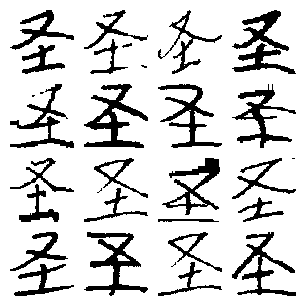 圣圣圣圣
圣圣圣圣
圣圣圣圣
圣圣圣圣